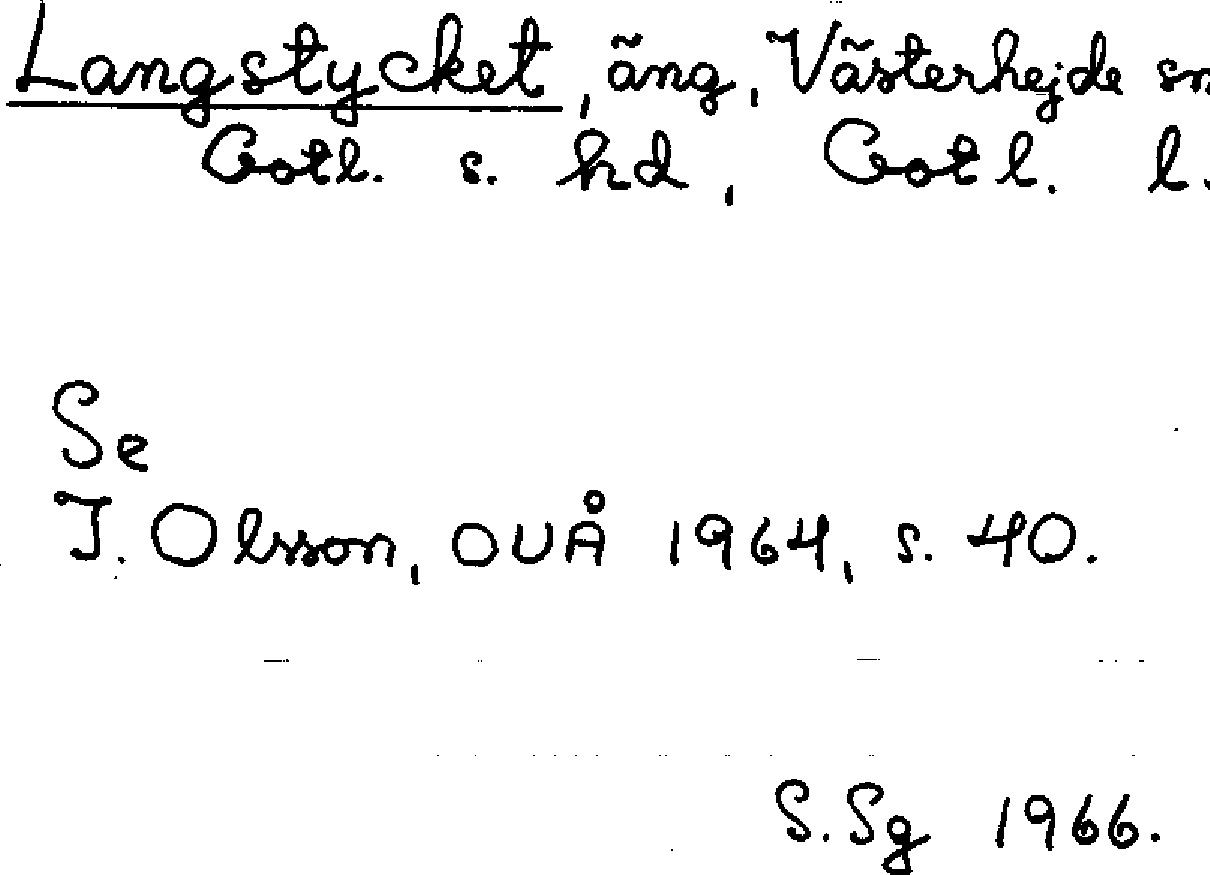 Langstycket, äng, Västerhejde sn
Gotl. s. hd, Gotl. l.
Se
I. Olsson, OUÅ 1964, s. 40.
S. Sg 1966.